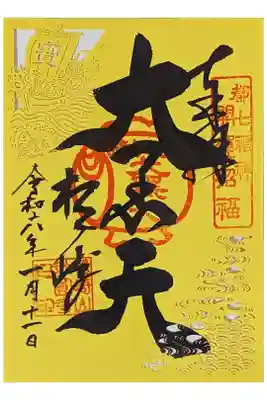 奉拝
都七福神
開運招福
大黒天
松ヶ崎
令和六年一月十一日